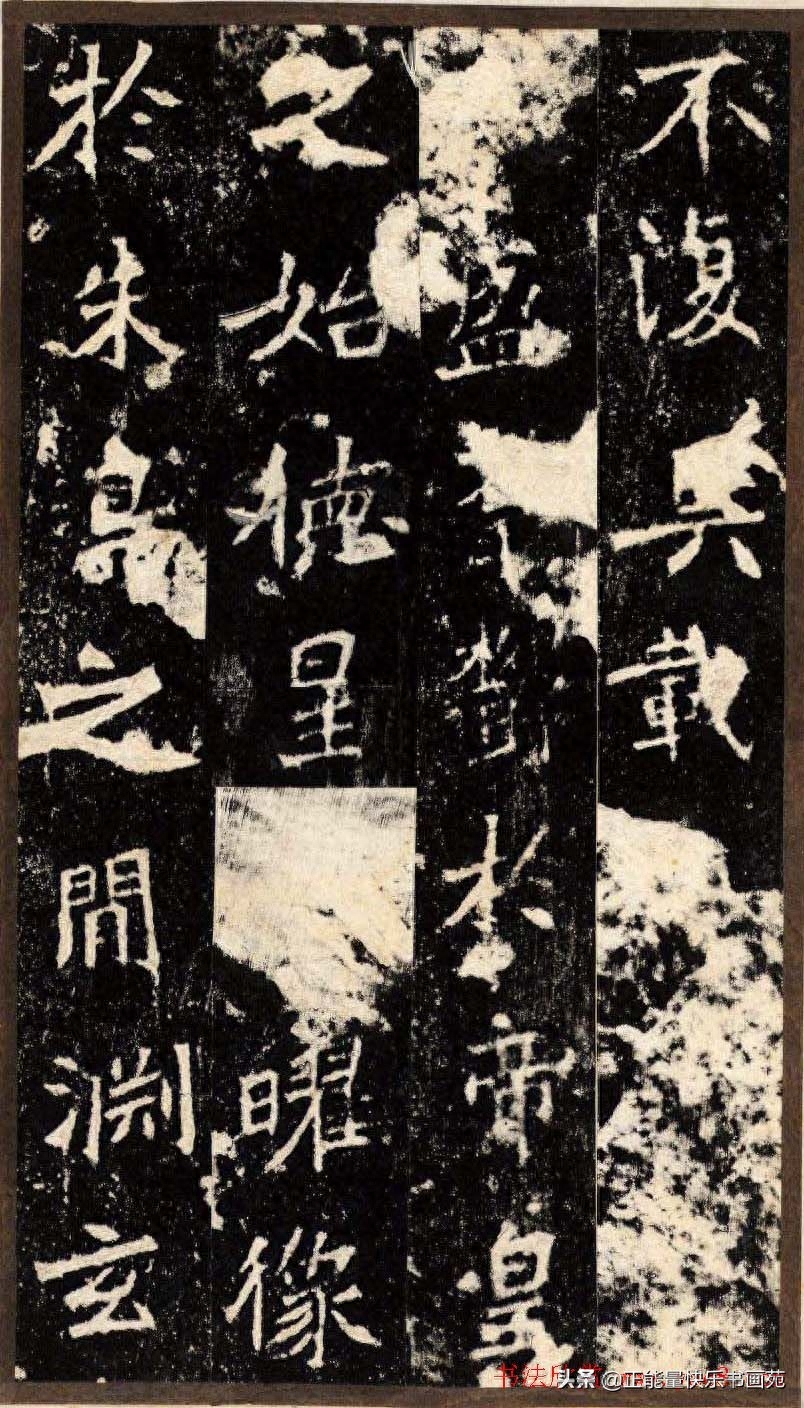 不復載
盈於帝皇
之始德星曜像
於朱鳥之間淵玄
书法欣
头条 @正能量快乐书画苑